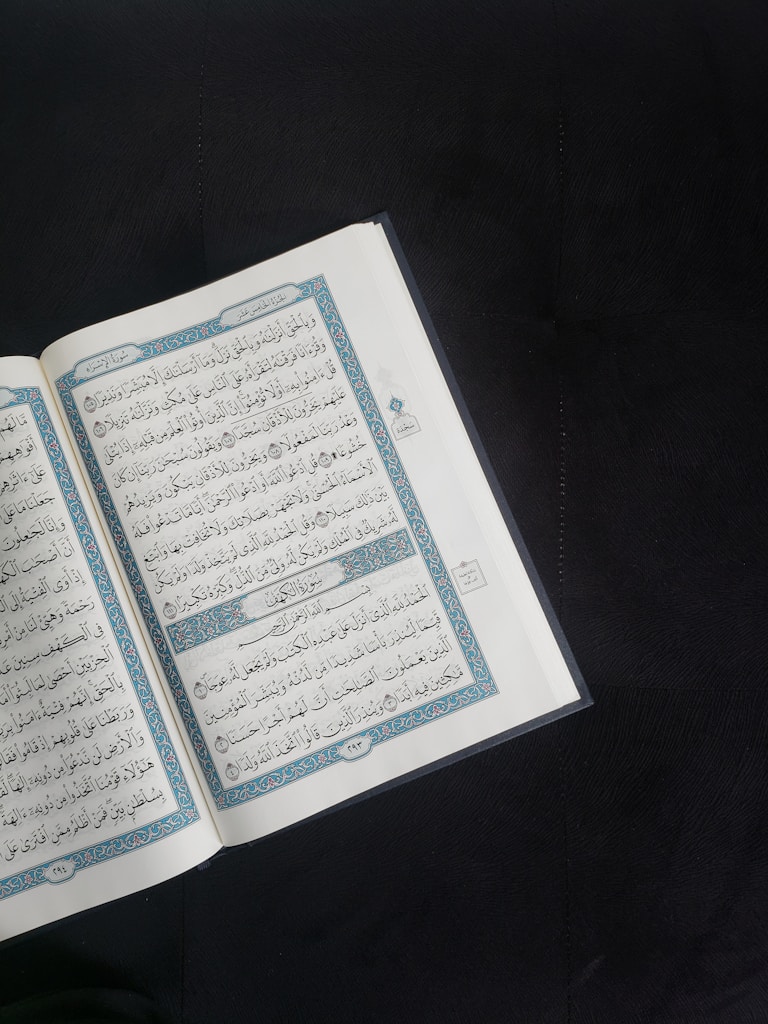 الجزء الخامس عشر
سورة الإسراء
وَبِٱلْحَقِّ أَنزَلْنَٰهُ وَبِٱلْحَقِّ نَزَلَ ۗ وَمَآ أَرْسَلْنَٰكَ إِلَّا مُبَشِّرًا وَنَذِيرًا ١٠٥
وَقُرْءَانًا فَرَقْنَٰهُ لِتَقْرَأَهُۥ عَلَى ٱلنَّاسِ عَلَىٰ مُكْثٍ وَنَزَّلْنَٰهُ تَنزِيلًا ١٠٦
قُلْ ءَامِنُوا۟ بِهِۦٓ أَوْ لَا تُؤْمِنُوٓا۟ ۚ إِنَّ ٱلَّذِينَ أُوتُوا۟ ٱلْعِلْمَ مِن قَبْلِهِۦٓ إِذَا يُتْلَىٰ
عَلَيْهِمْ يَخِرُّونَ لِلْأَذْقَانِ سُجَّدًا ١٠٧ وَيَقُولُونَ سُبْحَٰنَ رَبِّنَآ إِن كَانَ
وَعْدُ رَبِّنَا لَمَفْعُولًا ١٠٨ وَيَخِرُّونَ لِلْأَذْقَانِ يَبْكُونَ وَيَزِيدُهُمْ
خُشُوعًا ۩ ١٠٩ قُلِ ٱدْعُوا۟ ٱللَّهَ أَوِ ٱدْعُوا۟ ٱلرَّحْمَٰنَ ۖ أَيًّا مَّا تَدْعُوا۟ فَلَهُ
ٱلْأَسْمَآءُ ٱلْحُسْنَىٰ ۚ وَلَا تَجْهَرْ بِصَلَاتِكَ وَلَا تُخَافِتْ بِهَا وَٱبْتَغِ
بَيْنَ ذَٰلِكَ سَبِيلًا ١١٠ وَقُلِ ٱلْحَمْدُ لِلَّهِ ٱلَّذِى لَمْ يَتَّخِذْ وَلَدًا وَلَمْ يَكُن
لَّهُۥ شَرِيكٌ فِى ٱلْمُلْكِ وَلَمْ يَكُن لَّهُۥ وَلِىٌّ مِّنَ ٱلذُّلِّ ۖ وَكَبِّرْهُ تَكْبِيرًۢا ١١١
سُورَةُ الكَهْفِ
بِسْمِ ٱللَّهِ ٱلرَّحْمَٰنِ ٱلرَّحِيمِ
ٱلْحَمْدُ لِلَّهِ ٱلَّذِىٓ أَنزَلَ عَلَىٰ عَبْدِهِ ٱلْكِتَٰبَ وَلَمْ يَجْعَل لَّهُۥ عِوَجَا ١
قَيِّمًا لِّيُنذِرَ بَأْسًا شَدِيدًا مِّن لَّدُنْهُ وَيُبَشِّرَ ٱلْمُؤْمِنِينَ
ٱلَّذِينَ يَعْمَلُونَ ٱلصَّٰلِحَٰتِ أَنَّ لَهُمْ أَجْرًا حَسَنًا ٢
مَّٰكِثِينَ فِيهِ أَبَدًا ٣ وَيُنذِرَ ٱلَّذِينَ قَالُوا۟ ٱتَّخَذَ ٱللَّهُ وَلَدًا ٤
٢٩٣
سَجْدَة
مَّا لَهُم
أَفْوَٰهِهِمْ
عَلَىٰٓ ءَاثَٰرِهِمْ
جَعَلْنَا مَا عَلَى
وَإِنَّا لَجَٰعِلُونَ
أَنَّ أَصْحَٰبَ ٱلْكَهْفِ
إِذْ أَوَى ٱلْفِتْيَةُ إِلَى
رَحْمَةً وَهَيِّئْ لَنَا مِنْ أَمْرِنَا
فِى ٱلْكَهْفِ سِنِينَ
ٱلْحِزْبَيْنِ أَحْصَىٰ لِمَا لَبِثُوٓا۟
بِٱلْحَقِّ ۚ إِنَّهُمْ فِتْيَةٌ ءَامَنُوا۟
وَرَبَطْنَا عَلَىٰ قُلُوبِهِمْ إِذْ قَامُوا۟ فَقَالُوا۟
وَٱلْأَرْضِ لَن نَّدْعُوَا۟ مِن دُونِهِۦٓ إِلَٰهًا ۖ
هَٰٓؤُلَآءِ قَوْمُنَا ٱتَّخَذُوا۟ مِن دُونِهِۦٓ ءَالِهَةً ۖ
بِسُلْطَٰنٍۭ بَيِّنٍ ۖ فَمَنْ أَظْلَمُ مِمَّنِ ٱفْتَرَىٰ عَلَى
٢٩٤